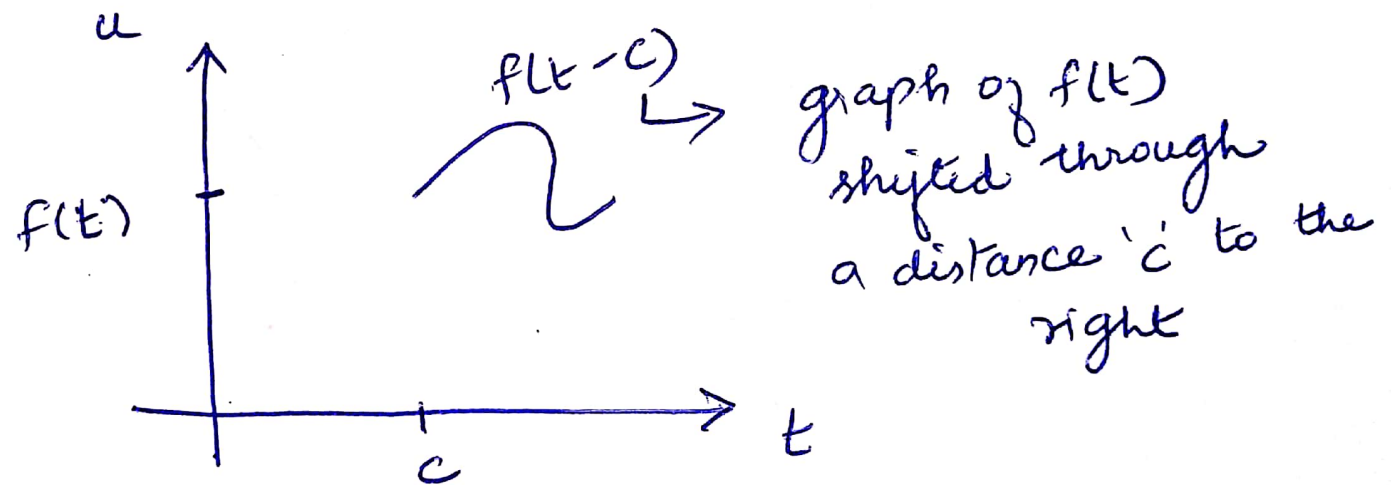 u
f(t-c)
graph of f(t)
shifted through
a distance 'c' to the
right
f(t)
t
c